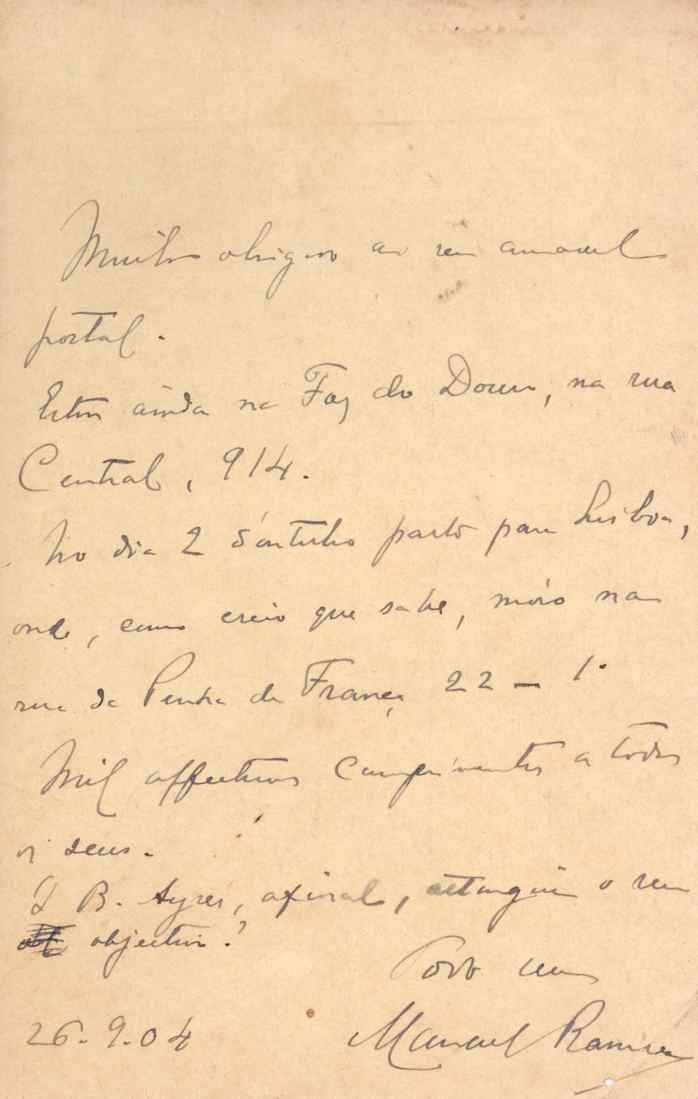 Muito obrigado ao seu amavel
postal.
Estou ainda na Foz do Douro, na rua
Central, 914.
No dia 2 d'outubro parto para Lisboa,
onde, como creio que sabe, móro na
rua da Penha de França 22 – 1º
Mil affectuosos cumprimentos a todos
os seus.
B. Ayres, afinal, attingiu o seu
objectivo?
Todo seu
Manuel Ramos
26.9.04